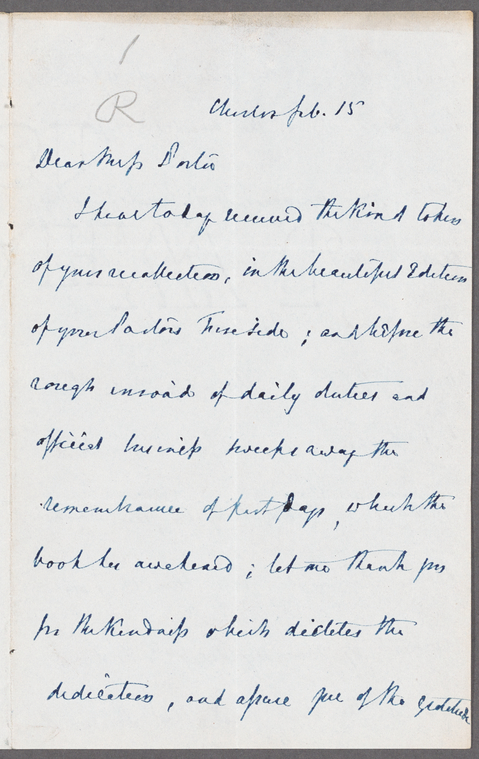 1
R
Chester Feb. 15
Dear Miss Porter
I have today received the kind token
of your recollection, in the beautiful Edition
of your Pastor's Fireside; and before the
rough inroad of daily duties and
official business sweeps away the
remembrance of past days, which the
book has awakened; let me thank you
for the kindness which dictates the
dedication, and assure you of the gratitude